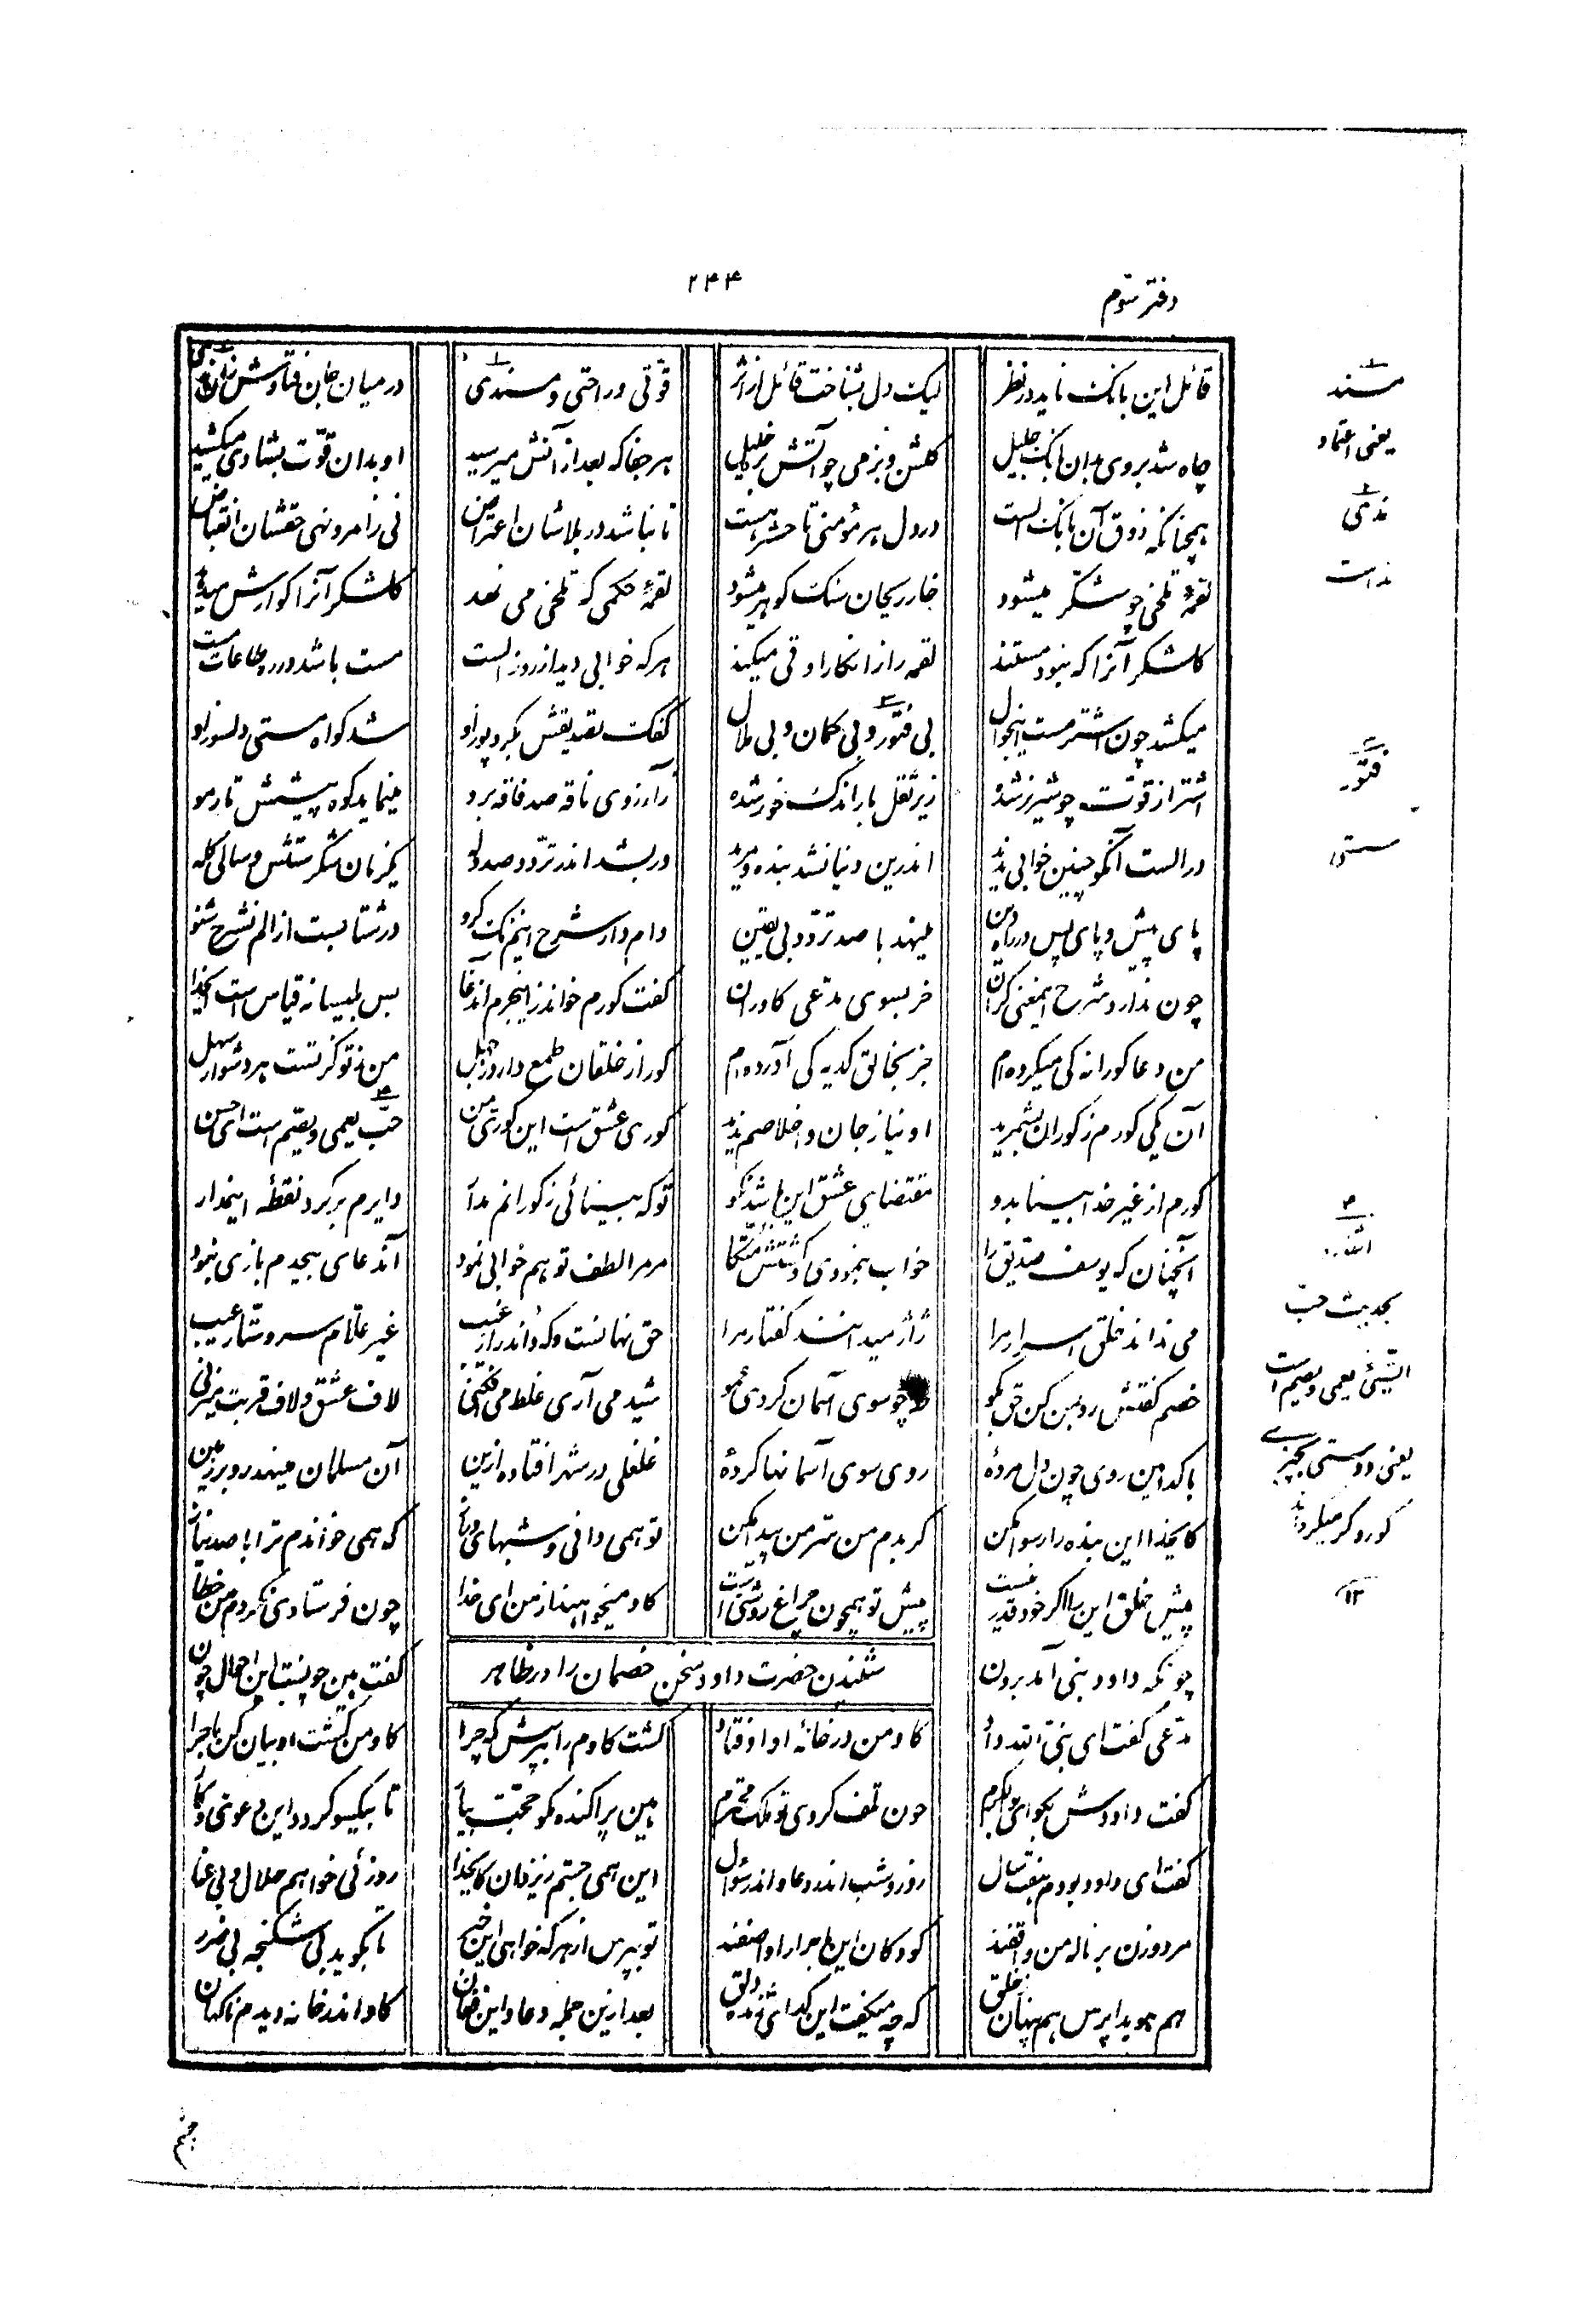 دفتر سوم
۲۴۴
قائل این بانک ناید در نظر لیک دل بشناخت قائل از اثر قوتی و راحتی و مسندی در میان جان فتادش زان ندی
چاه شد بر وی بدان بانک جلیل کلشن و بزمی چو آتش بر خلیل هر جفا که بعد از آنش میرسید او بدان قوّت بشادی میکشید
همچنانکه ذوق آن بانک الست در دل هر مؤمنی تا حشر هست تا نباشد در بلاشان اعتراض نی ز امر و نهی حقشان انقباض
لقمهٔ تلخی چو شکّر میشود خار ریحان سنک کوهر میشود لقمهٔ حکمی که تلخی می نهد کلشکر آنرا کوارش میدهد
کلشکر آنرا که نبود مستند لقمه را ز انکار او قی میکند هر که خوابی دید از روز الست مست باشد در ره طاعات مست
میکشد چون اشتر مست این جوال بی فتور و بی کمان و بی ملال کفک تصدیقش بکرد پوز او شد کواه مستی و دلسوز او
اشتر از قوّت چو شیر نر شده زیر ثقل بار اندک خور شده ز آرزوی ناقه صد فاقه برو مینماید کوه پیشش تار مو
در الست آنکو چنین خوابی ندید اندرین دنیا نشد بنده و مرید ور بشد اندر تردّد صد دله یکزمان شکرستش و سالی کله
پای پیش و پای پس در راه دین مینهد با صد تردّد بی یقین وام دار شرح اینم نک کرو ور شتابست از الم نشرح شنو
چون ندارد شرح اینمعنی کران خر بسوی مدّعی کاو ران کفت کورم خواند زینجرم آن دغا بس بلیسانه قیاس است ایخدا
من دعا کورانه کی میکرده ام جز بخالق کدیه کی آورده ام کور از خلقان طمع دارد ز جهل من ز تو کز تست هر دشوار سهل
آن یکی کورم ز کوران بشمرید او نیاز جان و اخلاصم ندید کوری عشق است این کوری من حبّ یعمی و یصم است ای حسن
کورم از غیر خدا بینا بدو مقتضای عشق این باشد نکو تو که بینائی ز کورانم مدار دایرم بر کرد نقطهٔ اینمدار
آنچنان که یوسف صدیق را خواب بنمودی و کشتش متّکا مر مرا لطف تو هم خوابی نمود آن دعای بیحدم بازی نبود
می نداند خلق اسرار مرا ژاژ میدانند کفتار مرا حق نهانست و که داند راز غیب غیر علّام سر و ستّار عیب
خصم کفتش رو بمن کن حق بکو چو سوی آسمان کردی عمو شید می آری غلط می افکنی لاف عشق و لاف قربت میزنی
با کدامین روی چون دل مردهٔ روی سوی آسمانها کردهٔ غلغلی در شهر افتاده ازین آن مسلمان مینهد رو بر زمین
کایخدا این بنده را رسوا مکن کر بدم من سرّ من پیدا مکن تو همی دانی و شبهای دراز که همی خواندم ترا با صد نیاز
پیش خلق این را اکر خود قدر نیست پیش تو همچون چراغ روشنی است کاو میخواهند از من ای خدا چون فرستادی نکردم من خطا
چونکه داود نبی آمد برون شنیدن حضرت داود سخن خصمان را در ظاهر کفت هین چونست این احوال چون
مدّعی کفت ای نبی اللّه داد کاو من در خانهٔ او اوفتاد کشت کاوم را بپرسش که چرا کاو من کشت او بیان کن ماجرا
کفت داودش بکو ای بو الکرم چون تلف کردی تو ملک محترم هین پراکنده مکو حجّت بیار تا بیکسو کردد این دعوی و کار
کفت ای داود بودم هفت سال روز و شب اندر دعا و اندر سؤال این همی جستم ز یزدان کایخدا روزئی خواهم حلال و بی عنا
مرد و زن بر ناله من واقفند کودکان این ماجرا را واصفند تو بپرس از هر که خواهی این خبر تا بکوید بی شکنجه بی ضرر
هم هویدا پرس هم پنهان ز خلق که چه میکفت این کدای ژنده دلق بعد ازین جمله دعا و این فغان کاو اندر خانه دیدم ناکهان
مسند
یعنی اعتماد
ندی
نداست
فتور
سستی
اشاره
بحدیث حبّ
الشیئ یعمی و یصم است
یعنی دوستی چیزی
کور و کر میکرداند
۱۲
چشم